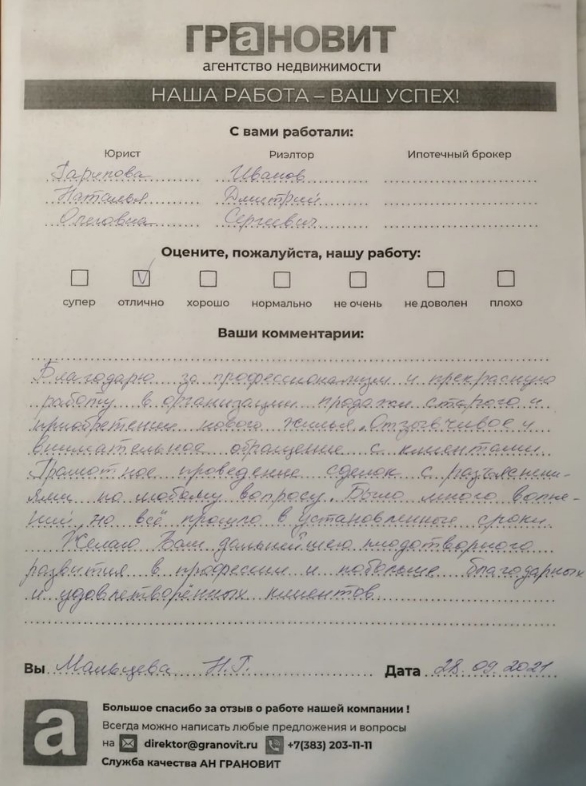 ГРаНОВИТ
агентство недвижимости
НАША РАБОТА – ВАШ УСПЕХ!
С вами работали:
Юрист Риэлтор Ипотечный брокер
Гарипова Иванов
Наталья Дмитрий
Олеговна Сергеевич
Оцените, пожалуйста, нашу работу:
V
супер отлично хорошо нормально не очень не доволен плохо
Ваши комментарии:
Благодарю за профессионализм и прекрасную
работу в организации продажи старого и
приобретении нового жилья. Отзывчивое и
внимательное обращение с клиентами.
Грамотное проведение сделок с разъяснени-
ями по любому вопросу. Было много волне-
ний, но всё прошло в установленные сроки.
Желаю Вам дальнейшего плодотворного
развития в профессии и побольше благодарных
и удовлетворённых клиентов.
Вы Мальцева Н.Г. Дата 28.09.2021
а
Большое спасибо за отзыв о работе нашей компании !
Всегда можно написать любые предложения и вопросы
на direktor@granovit.ru +7(383) 203-11-11
Служба качества АН ГРАНОВИТ